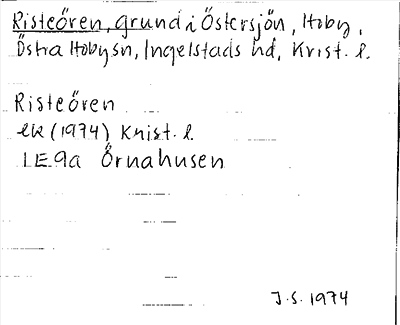 Risteören, grund i Östersjön, Hoby,
Östra Hoby sn, Ingelstads hd, Krist. l.
Risteören
ek (1974) Krist. l.
1E9a Örnahusen
J.S. 1974